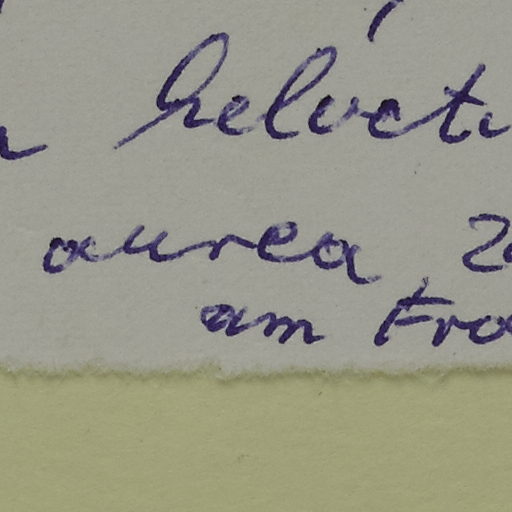 helveti
aurea, 2
am Fro